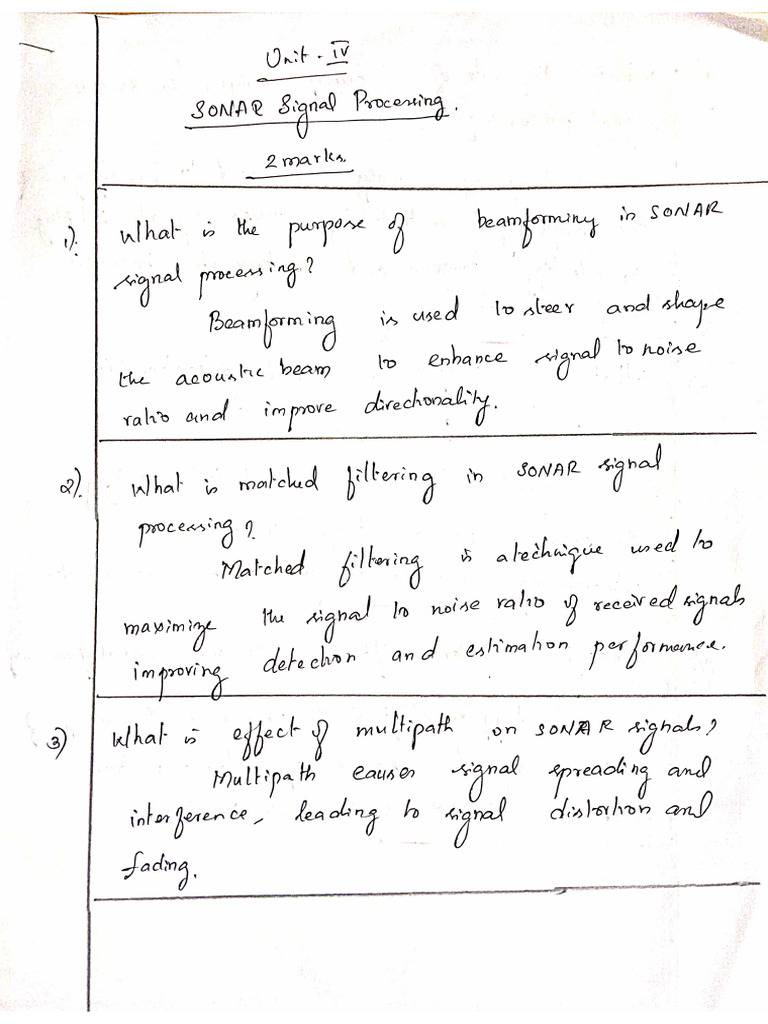 Unit - IV
SONAR Signal Processing.
2 marks.
1). What is the purpose of beamforming in SONAR
signal processing?
Beamforming is used to steer and shape
the acoustic beam to enhance signal to noise
ratio and improve directionality.
2). What is matched filtering in SONAR signal
processing?
Matched filtering is a technique used to
maximize the signal to noise ratio of received signals
improving detection and estimation performance.
3) What is effect of multipath on SONAR signals?
Multipath causes signal spreading and
interference, leading to signal distortion and
fading.